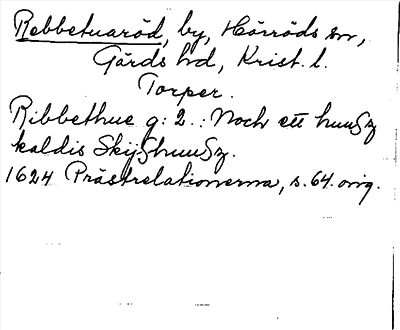 Rebbetuaröd, by, Hörröds sn,
Gärds hd, Krist. l.
Torper.
Ribbethue g: 2.: Noch ett huuſz
kaldis Skijſhuuſz.
1624 Prästrelationerna, s. 64. orig.